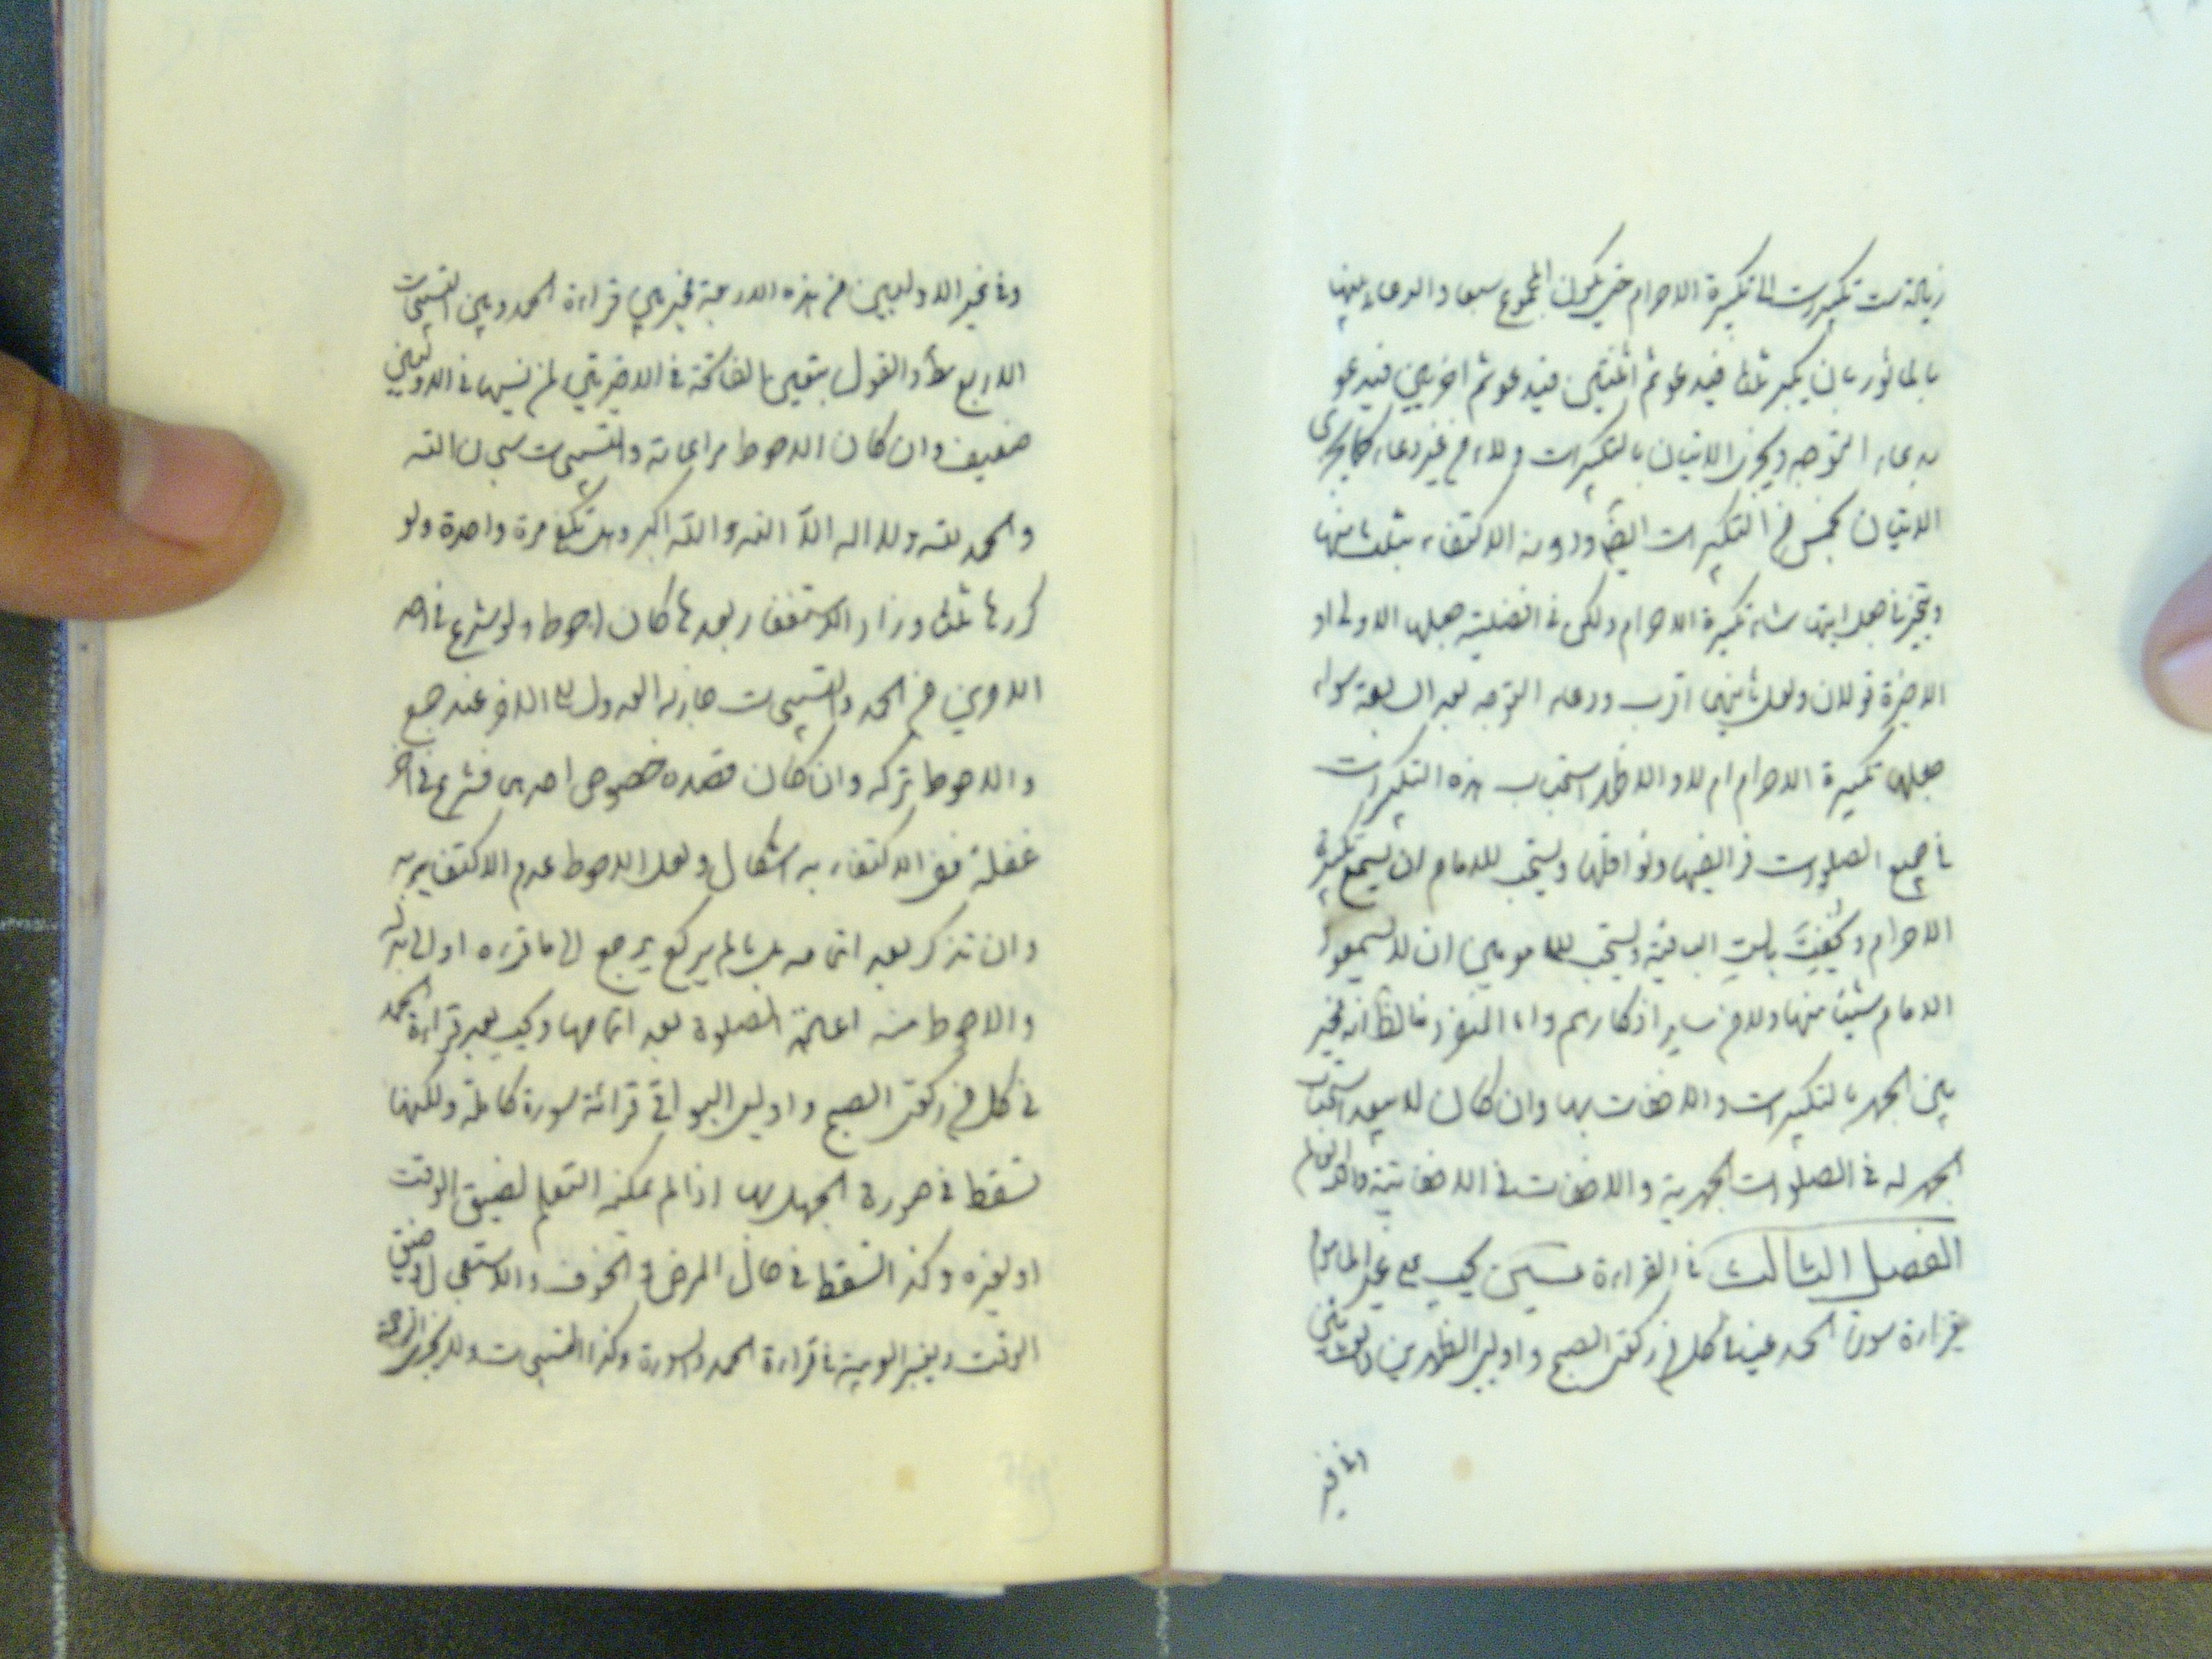 زيادة ست تكبيرات الى تكبيرة الاحرام حتى يكون المجموع سبعا والدعاء بينها
بالماثور بان يكبر ثلثا فيدعو ثم اثنتين فيدعو ثم اخريين فيدعو
بدعاء التوجه ويجوز الاتيان بالتكبيرات ولاء من غير دعاء كما يجزى
الاتيان بخمس من التكبيرات ايضا ودونه الاكتفاء بثلث منها
ويتخير في جعل ايتها شاء تكبيرة الاحرام ولكن في افضلية جعلها الاولى او
الاخيرة قولان ولعل ثانيهما اقرب ودعاء التوجه بعد السابعة سواء
جعلها تكبيرة الاحرام ام لا والاظهر استحباب هذه التكبيرات
في جميع الصلوات فرايضها ونوافلها ويستحب للامام ان يسمع تكبيرة
الاحرام ويخفت بالست الباقية ويستحب للمامومين ان لا يسمعوا
الامام شيئا منها ولا من ساير اذكارهم واما المنفرد فالظ انه مخير
بين الجهر بالتكبيرات والاخفات بها وان كان لا يبعد استحباب
الجهر له في الصلوات الجهرية والاخفات في الاخفاتية
الفصل الثالث في القراءة يجب على غير الماموم
قراءة سورة الحمد عينا في كل من ركعتي الصبح واوليي الظهرين والعشائين
وفي غير
وفي غير الاوليين من هذه الاربعة تخير بين قراءة الحمد وبين التسبيحات
الاربع مط والقول بتعيين الفاتحة في الاخيرتين لمن نسيها في الاوليين
ضعيف وان كان الاحوط مراعاته والتسبيحات سبحان الله
والحمد لله ولا اله الا الله والله اكبر وهل تكفي مرة واحدة ولو
كررها ثلثا وزاد الاستغفار بعدها كان احوط ولو شرع في احد
الامرين من الحمد والتسبيحات جاز له العدول الى الاخر عند جمع
والاحوط تركه وان كان قصده خصوص احدهما فشرع في اخر
غفلة ففي الاكتفاء به اشكال ولعل الاحوط عدم الاكتفاء به
وان تذكر بعد اتمامه بل مالم يركع يرجع الى ما قرءه اولا
والاحوط منه اعادة الصلوة بعد اتمامها ويجب بعد قراءة الحمد
في كل من ركعتي الصبح واوليي البواقي قرائة سورة كاملة ولكنها
تسقط في صورة الجهل بها اذا لم يمكنه التعلم لضيق الوقت
او لغيره وكذا تسقط في حال المرض والخوف والاستعجال وضيق
الوقت ويعتبر العربية في قراءة الحمد والسورة وكذا التسبيحات ولا يجزى الترجمة